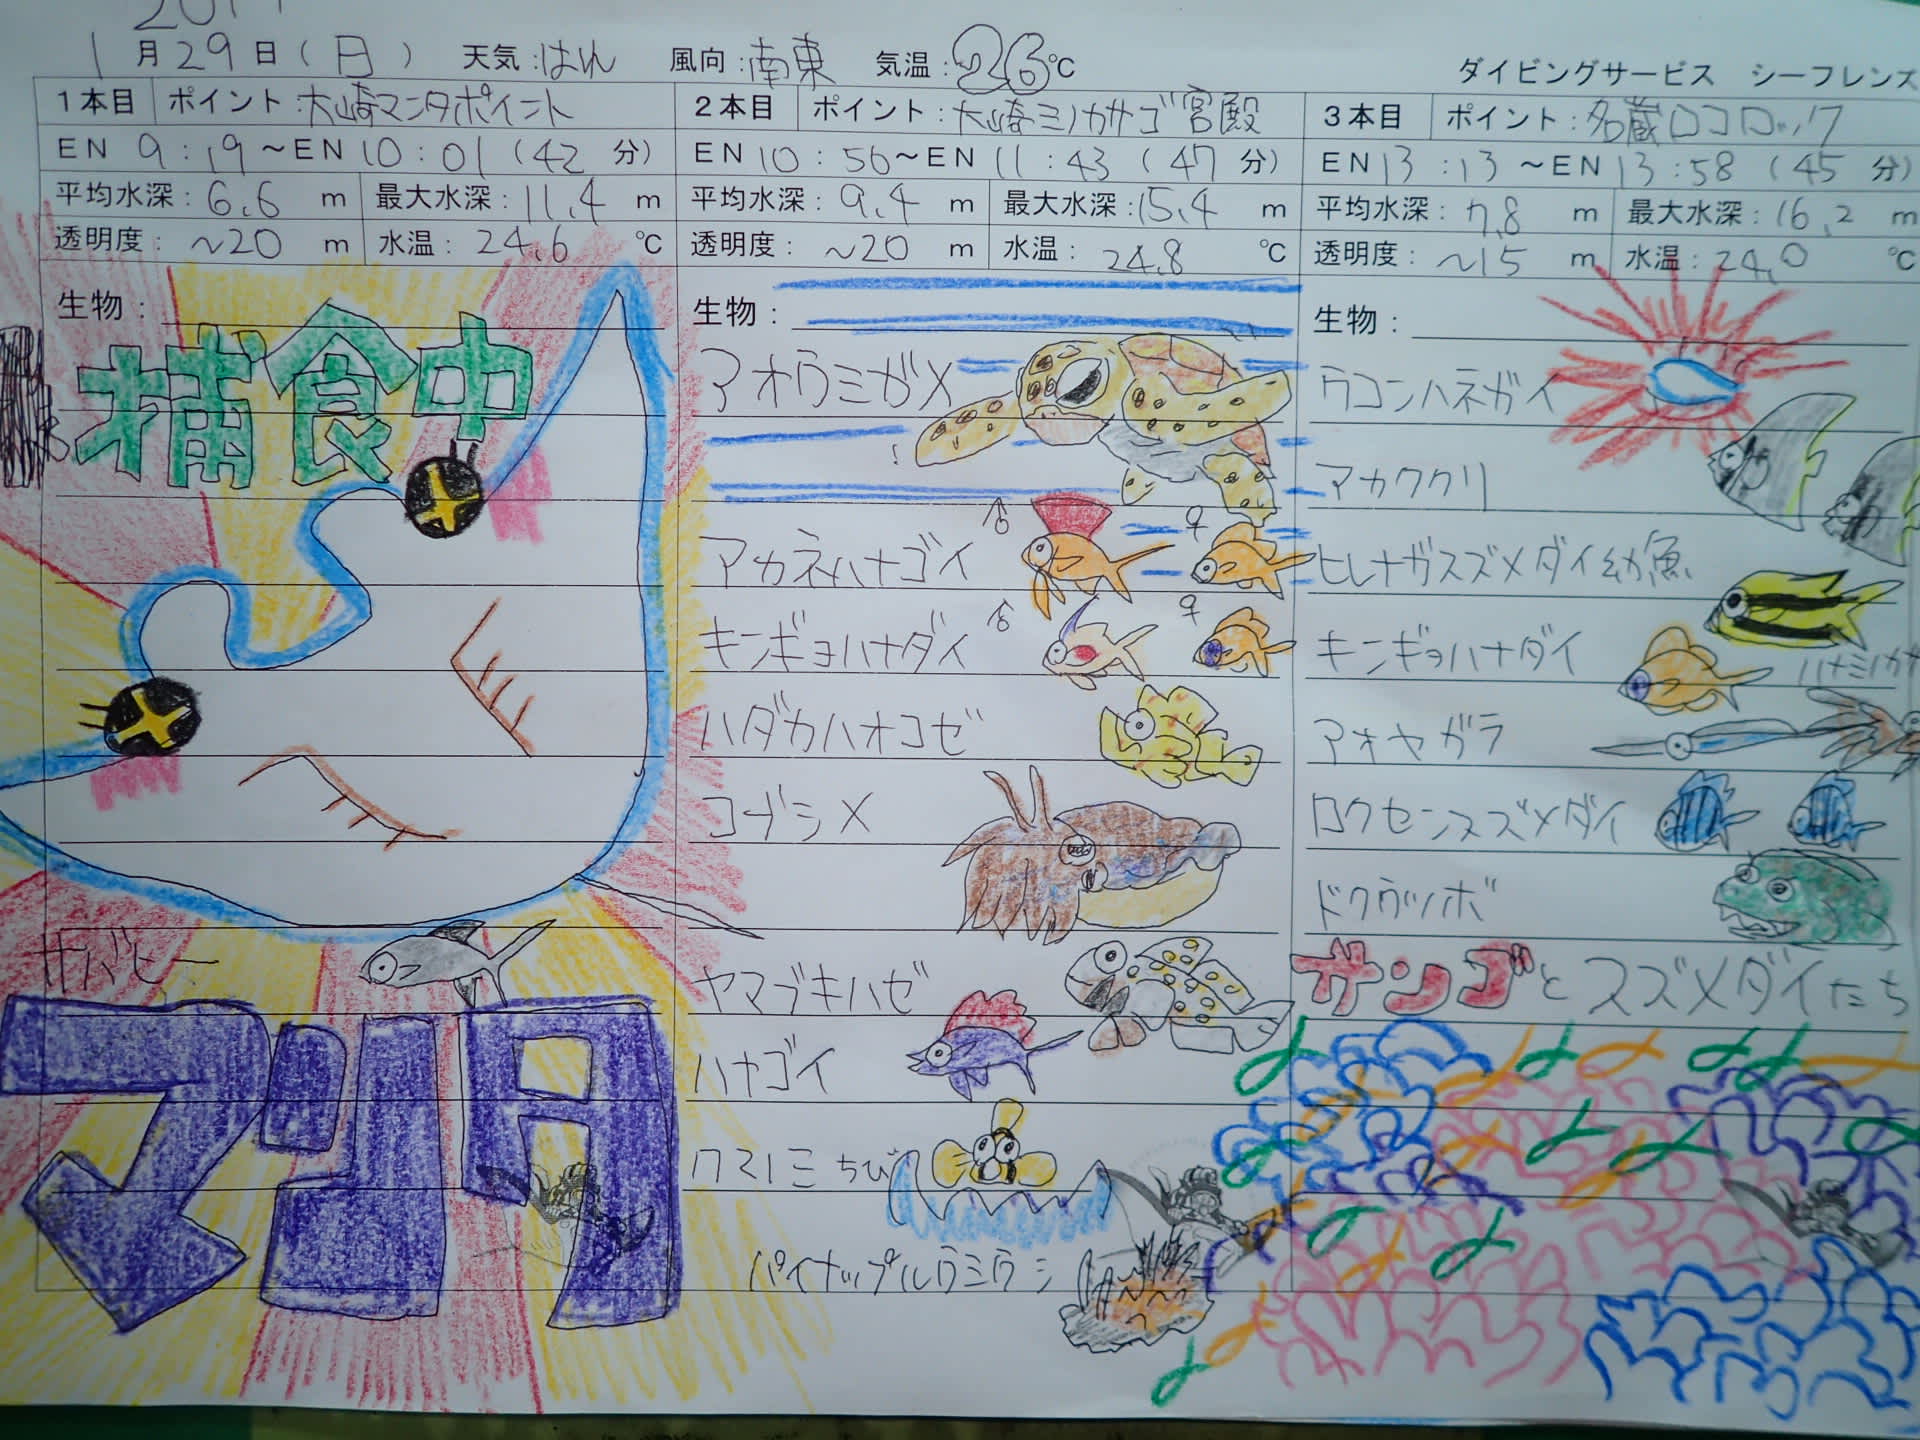 1月29日(日) 天気:はれ 風向:南東 気温:26℃
ダイビングサービス シーフレンズ
1本目 ポイント:大崎マンタポイント
EN 9:19～EN 10:01(42分)
平均水深:6.6m 最大水深:11.4m
透明度:～20m 水温:24.6℃
生物:
捕食中
サバヒー
マンタ
2本目 ポイント:大崎ミノカサゴ宮殿
EN 10:56～EN 11:43(47分)
平均水深:9.4m 最大水深:15.4m
透明度:～20m 水温:24.8℃
生物:
アオウミガメ
アカネハナゴイ ♂ ♀
キンギョハナダイ ♂ ♀
ハダカハオコゼ
コブシメ
ヤマブキハゼ
ハナゴイ
クマノミちび
パイナップルウミウシ
3本目 ポイント:名蔵ロコロック
EN 13:13～EN 13:58(45分)
平均水深:7.8m 最大水深:16.2m
透明度:～15m 水温:24.0℃
生物:
ウコンハネガイ
アカククリ
ヒレナガスズメダイ幼魚
キンギョハナダイ
アオヤガラ
ロクセンスズメダイ
ドクウツボ
サンゴとスズメダイたち